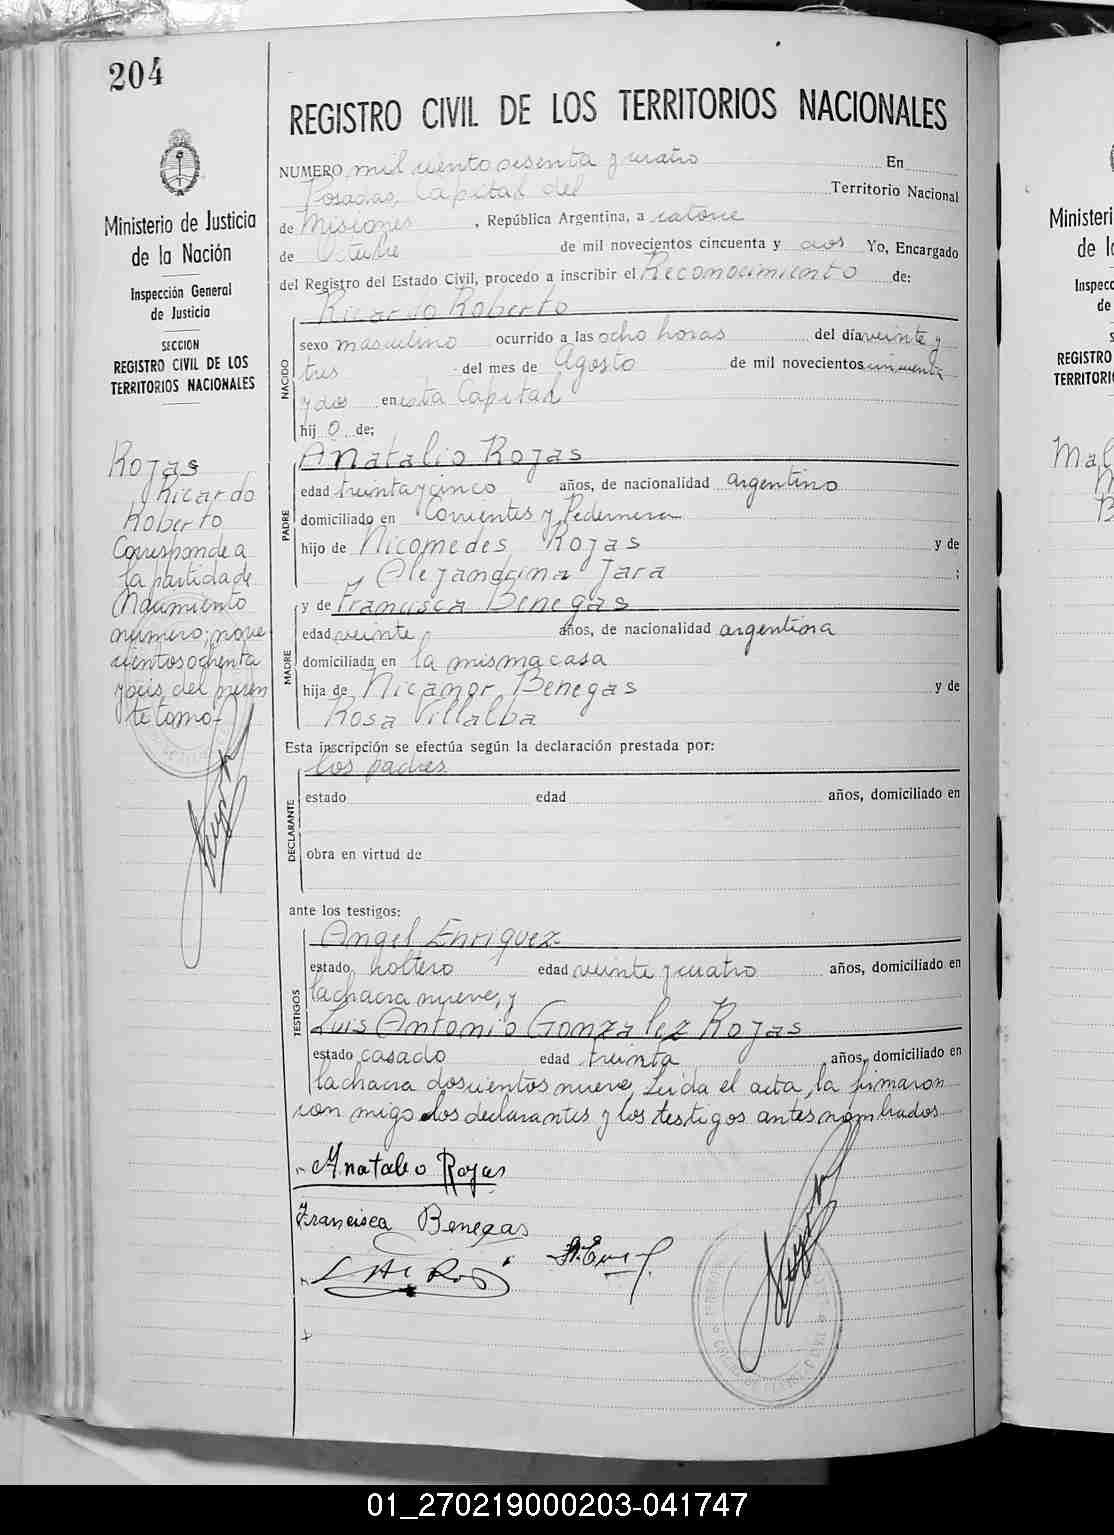 204
REGISTRO CIVIL DE LOS TERRITORIOS NACIONALES
Ministerio de Justicia
de la Nación
Inspección General
de Justicia
SECCION
REGISTRO CIVIL DE LOS
TERRITORIOS NACIONALES
Rojas
Ricardo
Roberto
Corresponde a
la partida de
Nacimiento
número; nove
cientos ochenta
y seis del presen
te tomo-
NUMERO mil ciento sesenta y cuatro En
Posadas, Capital del Territorio Nacional
de Misiones, República Argentina, a catorce
de Octubre de mil novecientos cincuenta y dos Yo, Encargado
del Registro del Estado Civil, procedo a inscribir el Reconocimiento de:
Ricardo Roberto
NACIDO
sexo masculino ocurrido a las ocho horas del día veinte y
tres del mes de Agosto de mil novecientos cincuenta
y dos en esta Capital
hij o de;
Anatalio Rojas
PADRE
edad treinta y cinco años, de nacionalidad argentino
domiciliado en Corrientes y Pedernera
hijo de Nicomedes Rojas y de
Alejandrina Jara ;
y de Francisca Benegas
MADRE
edad veinte años, de nacionalidad argentina
domiciliada en la misma casa
hija de Nicanor Benegas y de
Rosa Villalba
Esta inscripción se efectúa según la declaración prestada por:
los padres
DECLARANTE
estado edad años, domiciliado en
obra en virtud de
ante los testigos:
Angel Enriquez
TESTIGOS
estado soltero edad veinte y cuatro años, domiciliado en
la chacra nueve, y
Luis Antonio Gonzalez Rojas
estado casado edad treinta años, domiciliado en
la chacra doscientos nueve, Leída el acta, la firmaron
con migo los declarantes y los testigos antes nombrados
Anatalio Rojas
Francisca Benegas
Ministeri
REGISTRO
TERRITORI
Mal
01_270219000203-041747